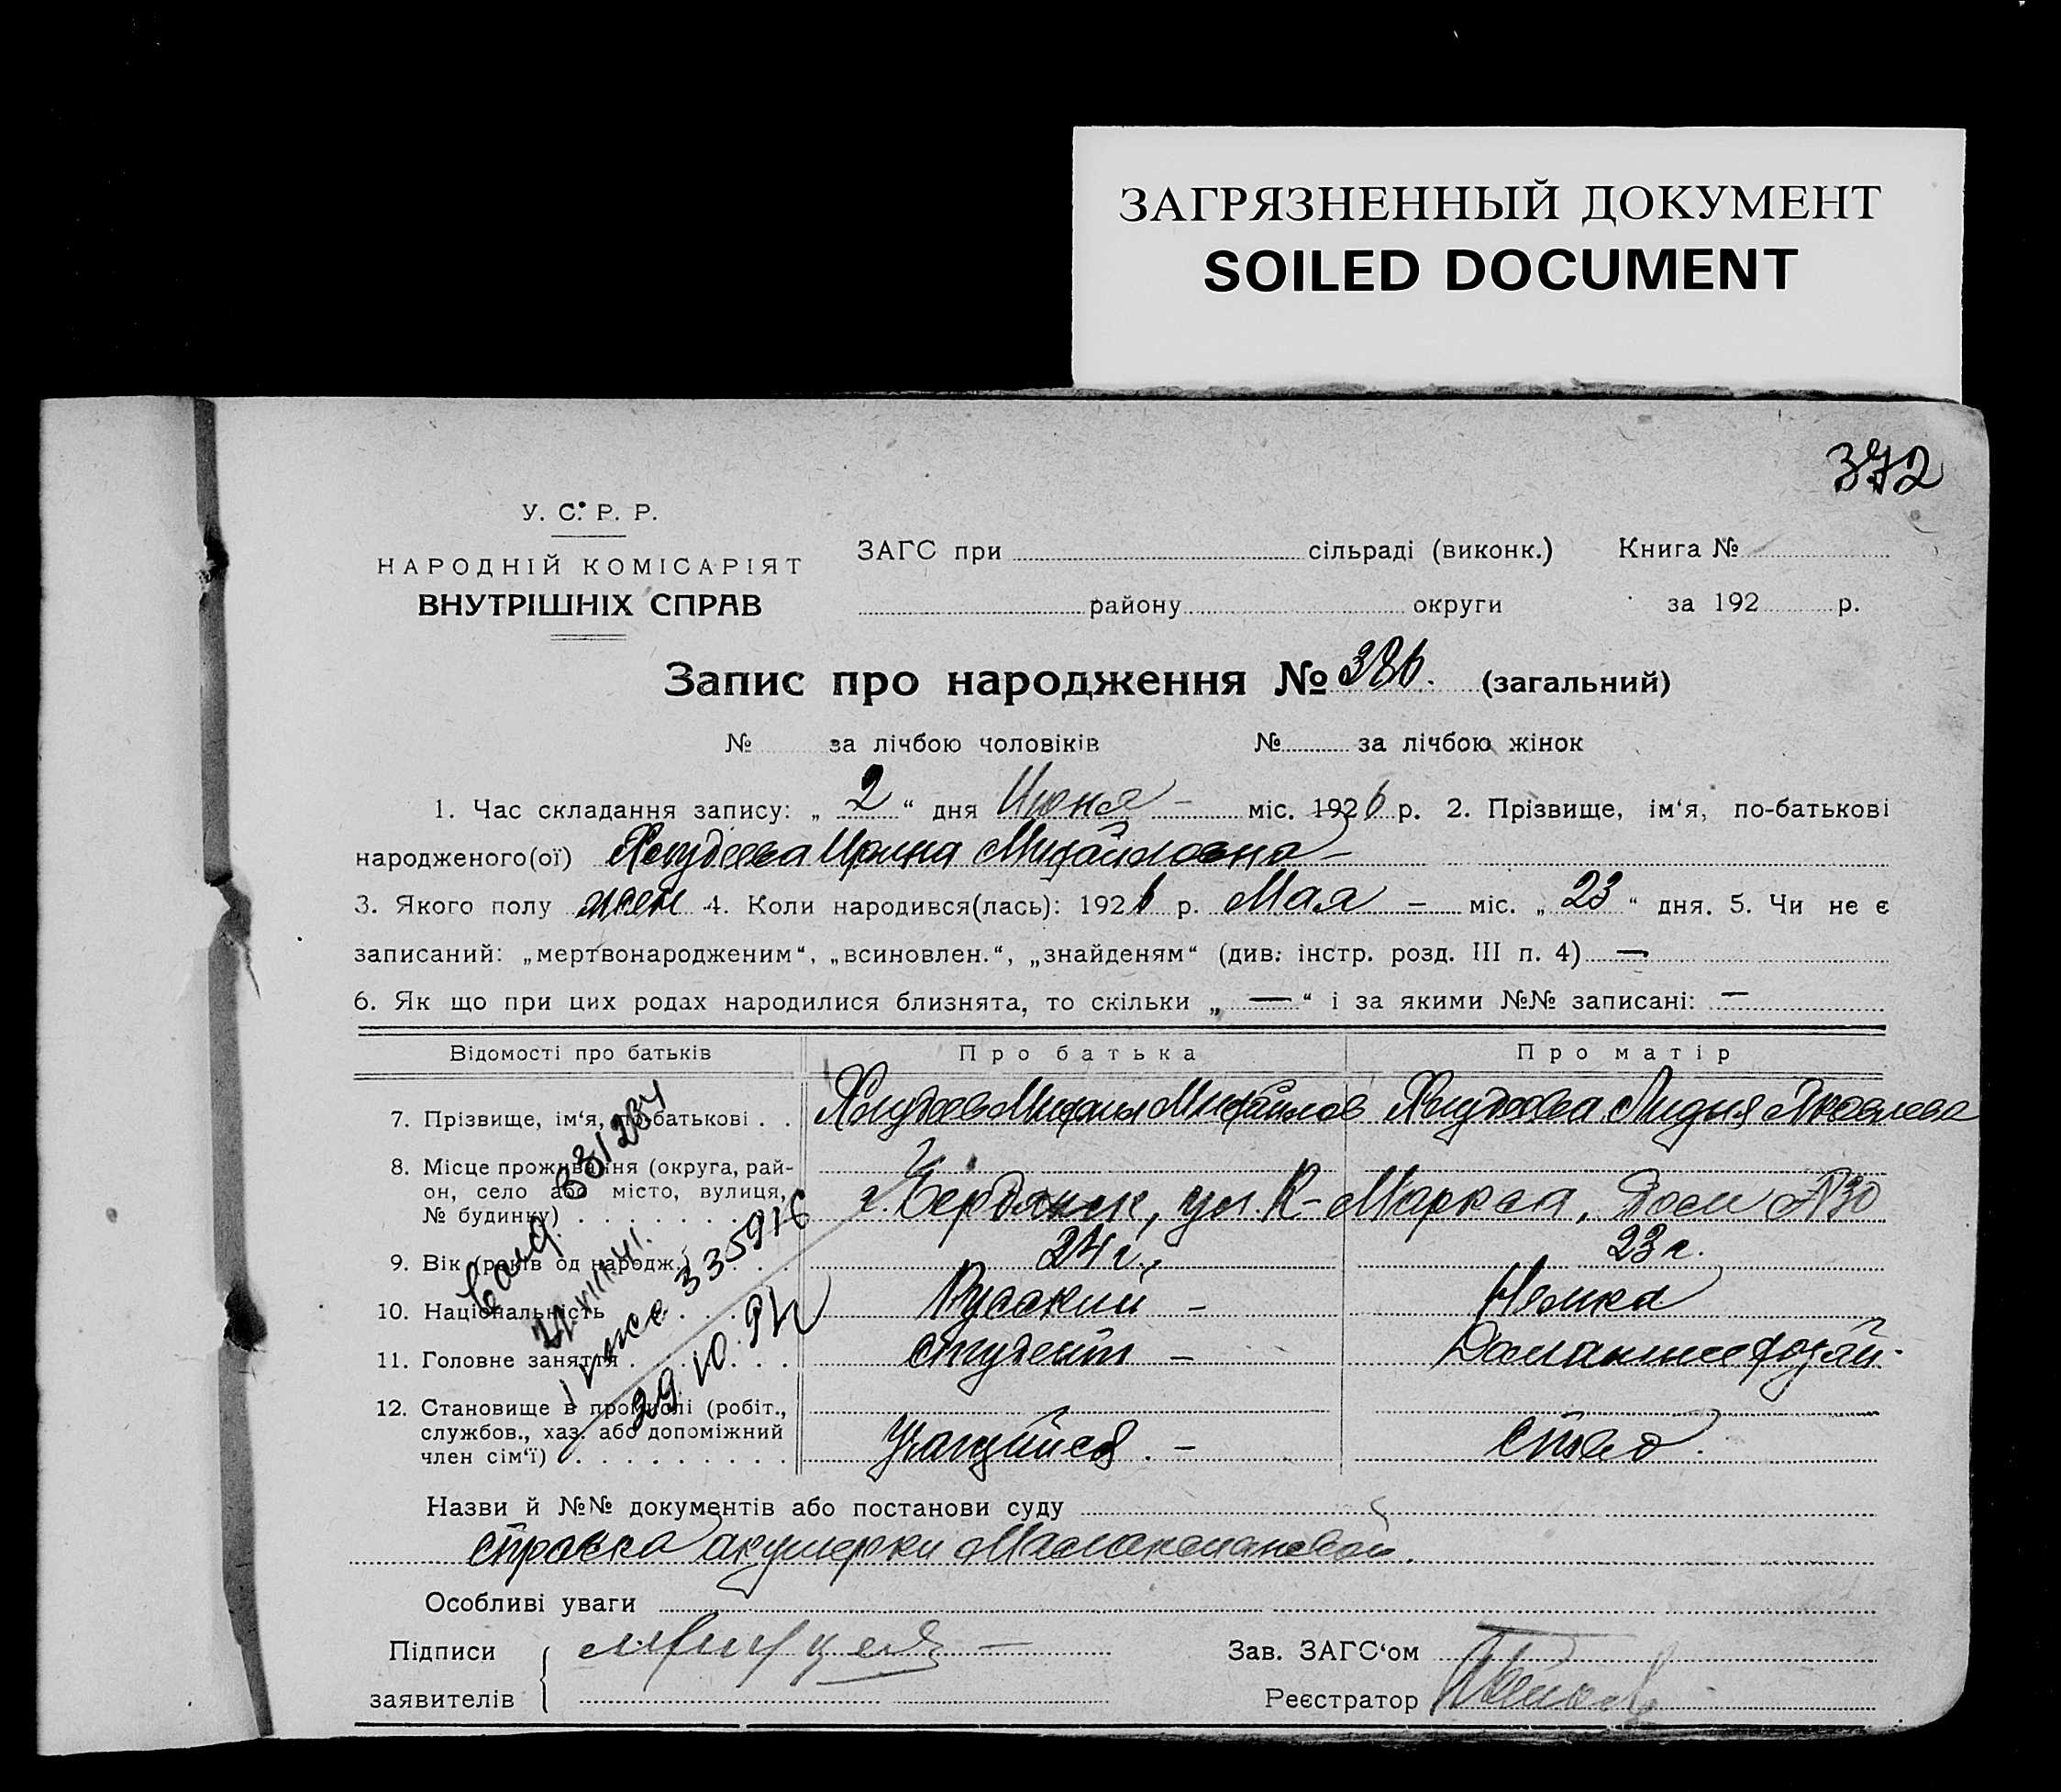 ЗАГРЯЗНЕННЫЙ ДОКУМЕНТ
SOILED DOCUMENT
372
У. С. Р. Р.
НАРОДНІЙ КОМІСАРІЯТ
ВНУТРІШНІХ СПРАВ
ЗАГС при сільраді (виконк.) Книга №
району округи за 192 р.
Запис про народження № 386. (загальний)
№ за лічбою чоловіків № за лічбою жінок
1. Час складання запису: „ 2 “ дня Июня - міс. 1926 р. 2. Прізвище, ім‘я, по-батькові
народженого(ої) Ирина Михайловна -
3. Якого полу жен 4. Коли народився(лась): 1926 р. Мая - міс. „ 23 “ дня. 5. Чи не є
записаний: „мертвонародженим“, „всиновлен.“, „знайденям“ (див. інстр. розд. III п. 4) —
6. Як що при цих родах народилися близнята, то скільки „ — “ і за якими №№ записані: —
Відомості про батьків Про батька Про матір
7. Прізвище, ім‘я, по-батькові . . Михаил Михайлов Лидия Яковлева
8. Місце проживання (округа, рай-
он, село або місто, вулиця,
№ будинку) . . . . . . . . . г. Бердянск, ул. К-Маркса, Дом №30
9. Вік (років од народж.) . . . 24 г. 23 г.
10. Національність . . . . Русский - Немка
11. Головне заняття . . . . . . . студент - Домашнее хозяй-
12. Становище в промислі (робіт.,
службов., хаз. або допоміжний
член сім‘ї) . . . . . . . . . . Учащийся. - ство.
331234
21.VIII.41.
335916
29.10.94
Назви й №№ документів або постанови суду
справка акушерки
Особливі уваги
Підписи
заявителів
Зав. ЗАГС‘ом
Реєстратор